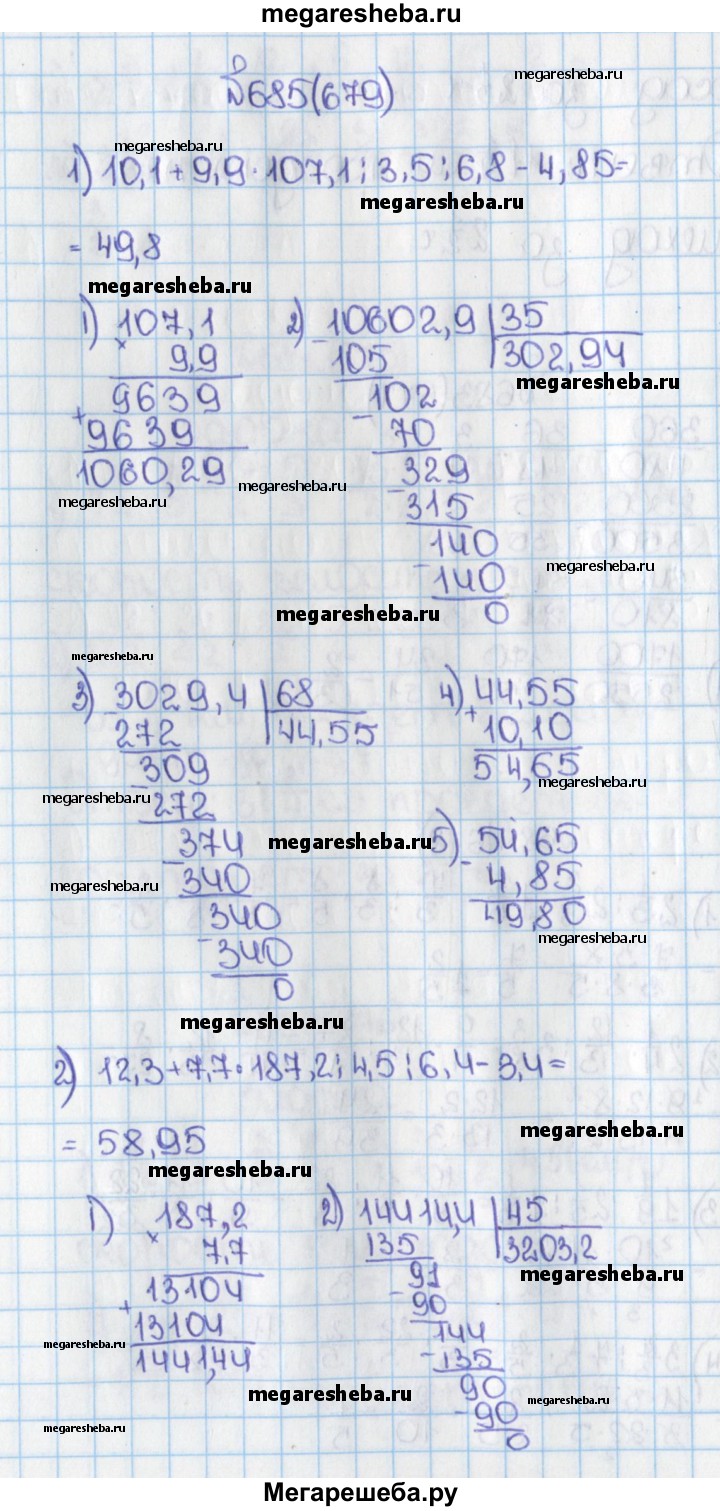 megaresheba.ru
№685(679)
megaresheba.ru
megaresheba.ru
1) 10,1+9,9·107,1:3,5:6,8-4,85=
megaresheba.ru
= 49,8
megaresheba.ru
1) 107,1
× 9,9
9639
+ 9639
1060,29
megaresheba.ru
megaresheba.ru
2) 10602,9 | 35
- 105 | 302,94
megaresheba.ru
102
- 70
329
- 315
140
- 140
0
megaresheba.ru
megaresheba.ru
megaresheba.ru
3) 3029,4 | 68
- 272 | 44,55
309
- 272
374
- 340
340
- 340
0
megaresheba.ru
megaresheba.ru
megaresheba.ru
4) 44,55
+ 10,10
54,65
megaresheba.ru
5) 54,65
- 4,85
49,80
megaresheba.ru
megaresheba.ru
2) 12,3+7,7·187,2:4,5:6,4-3,4=
megaresheba.ru
= 58,95
megaresheba.ru
1) 187,2
× 7,7
13104
+ 13104
1441,44
megaresheba.ru
2) 14414,4 | 45
135 | 3203,2
megaresheba.ru
91
- 90
144
- 135
90
- 90
0
megaresheba.ru
megaresheba.ru
megaresheba.ru
Мегарешеба.ру